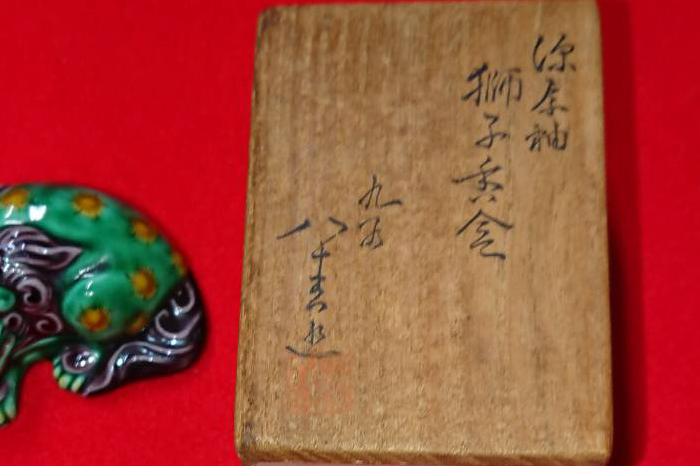 深厚釉
獅子香合
九谷
八十吉造